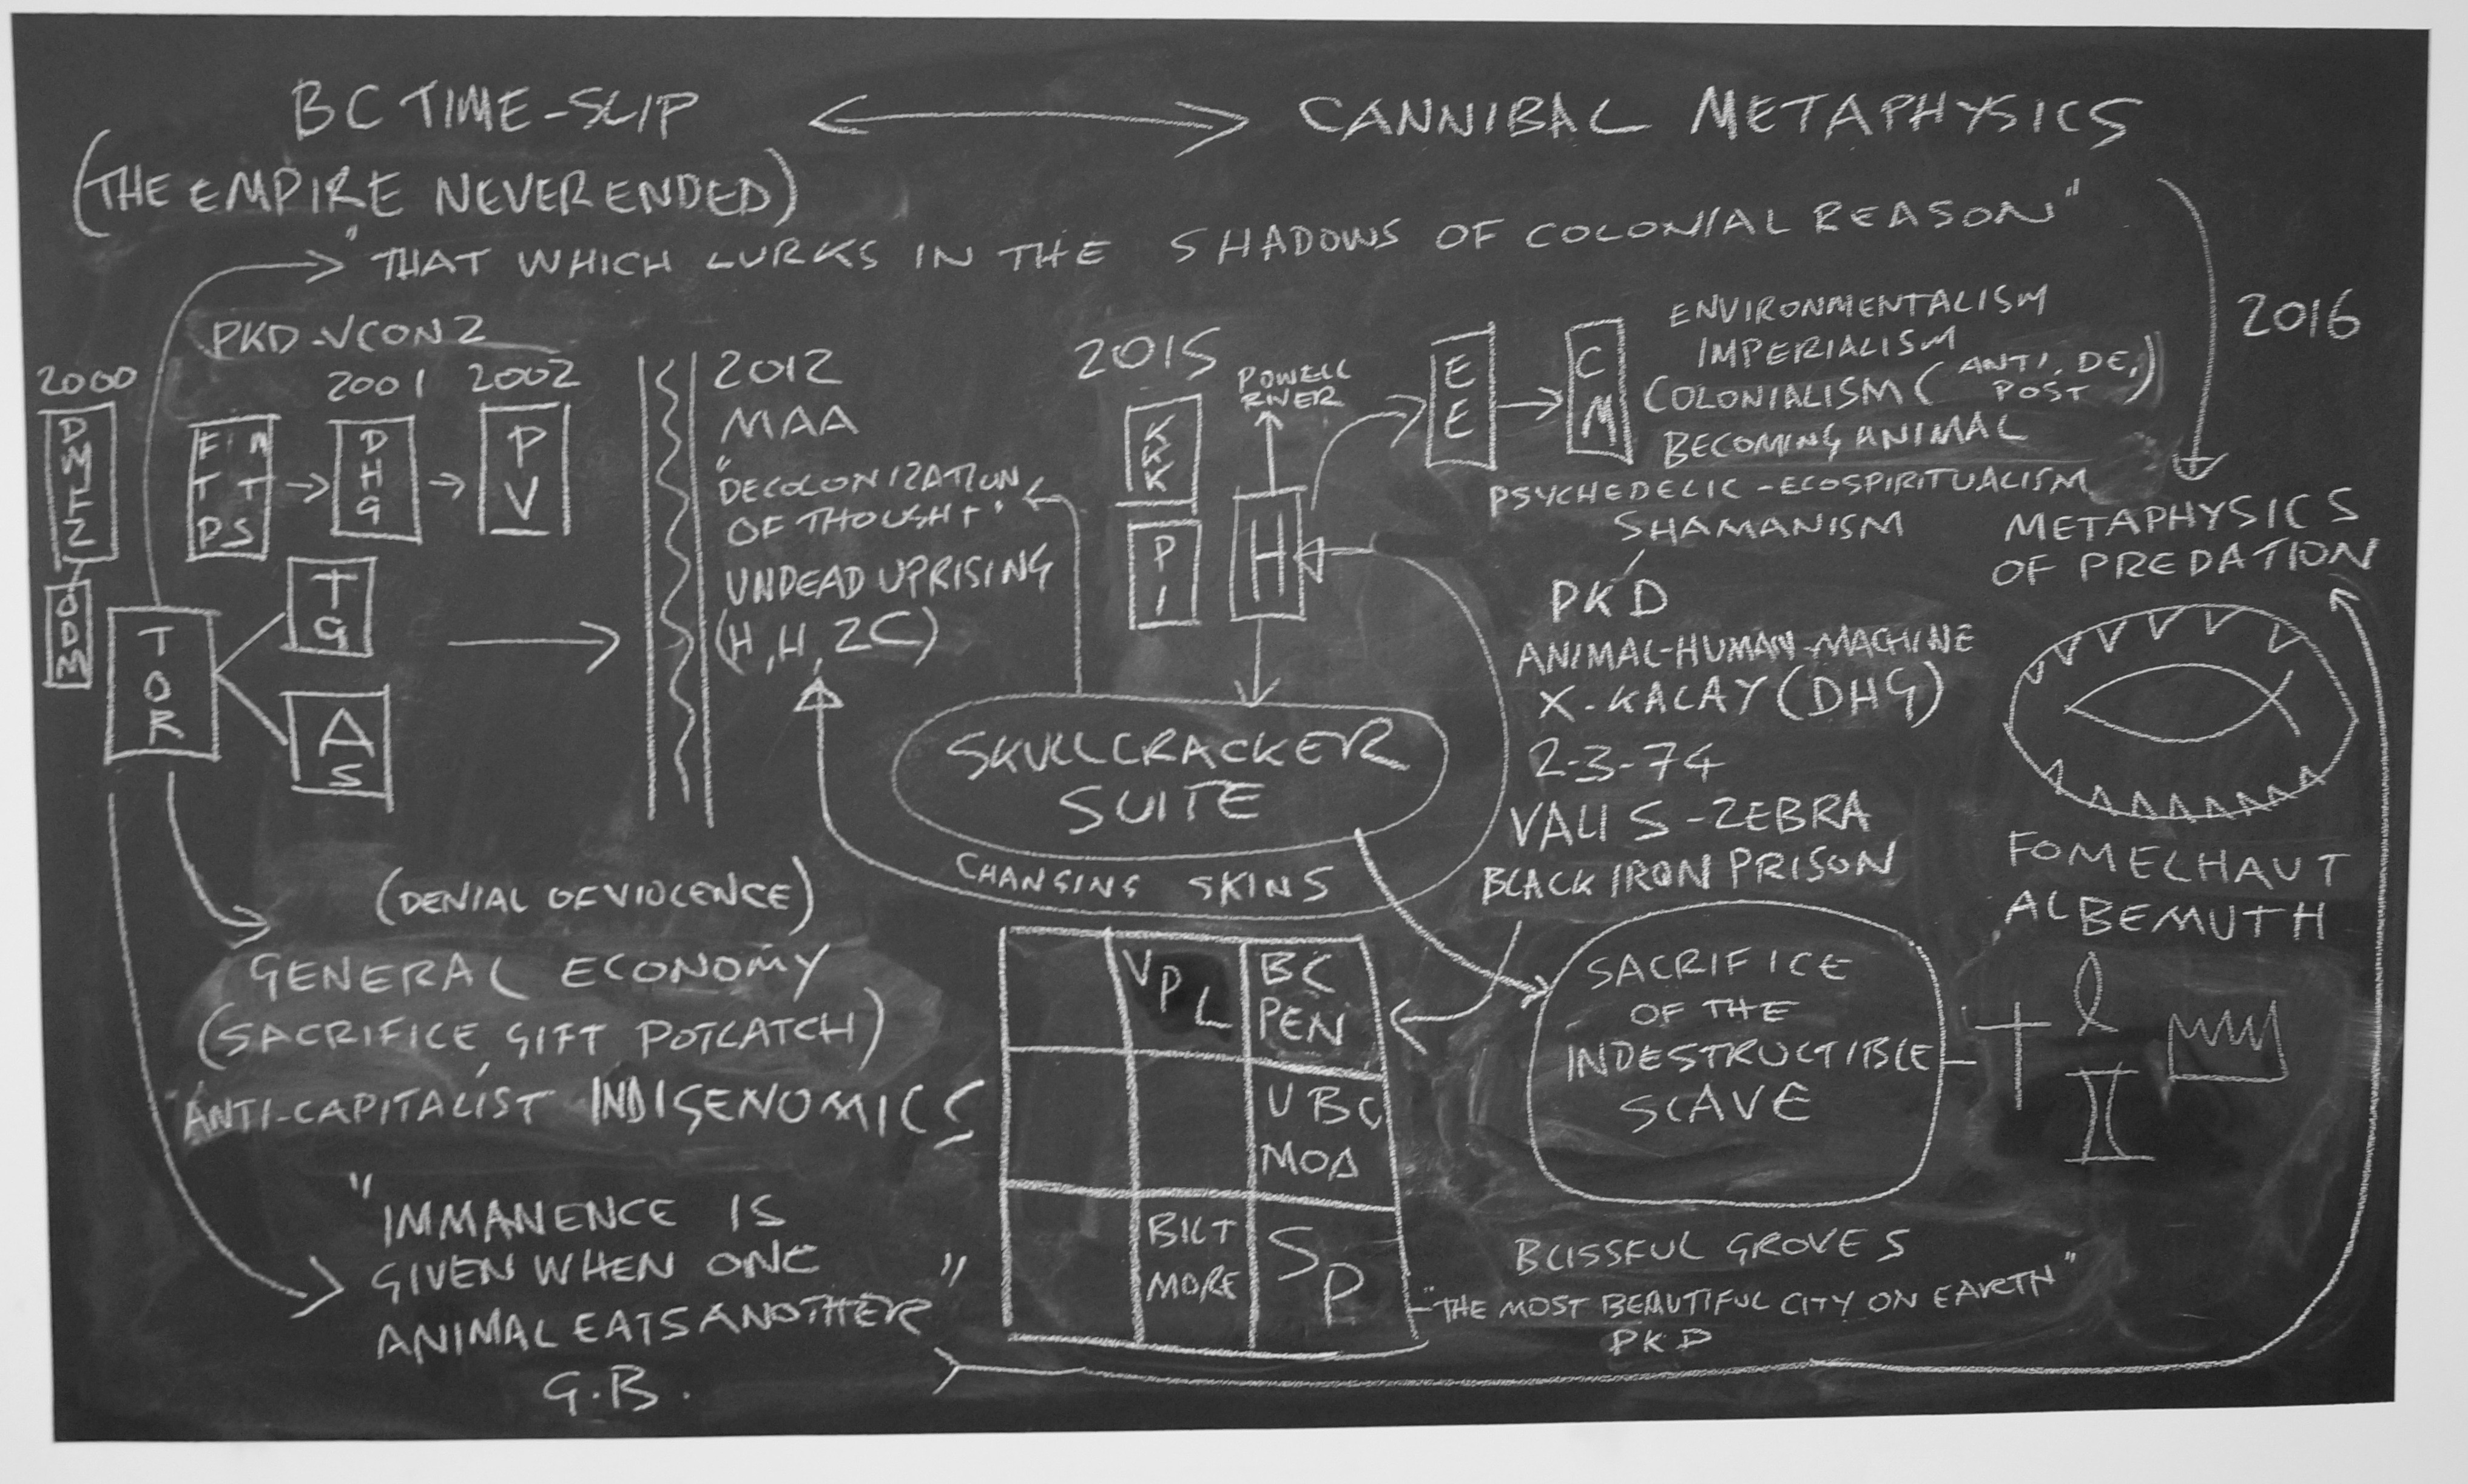 BC TIME-SLIP
CANNIBAL METAPHYSICS
(THE EMPIRE NEVER ENDED)
"THAT WHICH LURKS IN THE SHADOWS OF COLONIAL REASON"
PKD-VCON2
2000
2001
2002
DHG
PV
TOR
TG
AS
2012
MAA
"DECOLONIZATION
OF THOUGHT"
UNDEAD UPRISING
(H, H, ZC)
2015
KKK
PI
POWELL
RIVER
H
EE
CM
ENVIRONMENTALISM
IMPERIALISM
COLONIALISM (ANTI, DE,
POST)
BECOMING ANIMAL
PSYCHEDELIC-ECOSPIRITUALISM
SHAMANISM
2016
METAPHYSICS
OF PREDATION
PKD
ANIMAL-HUMAN-MACHINE
X-KALAY (DHG)
2-3-74
VALIS-ZEBRA
BLACK IRON PRISON
FOMELHAUT
ALBEMUTH
SKULLCRACKER
SUITE
CHANGING SKINS
(DENIAL OF VIOLENCE)
GENERAL ECONOMY
(SACRIFICE, GIFT POTLATCH)
ANTI-CAPITALIST INDIGENOMICS
"IMMANENCE IS
GIVEN WHEN ONE
ANIMAL EATS ANOTHER"
G.B.
VPL
BC
PEN
UBC
MOA
BILT
MORE
SP
SACRIFICE
OF THE
INDESTRUCTIBLE
SLAVE
BLISSFUL GROVES
"THE MOST BEAUTIFUL CITY ON EARTH"
PKD